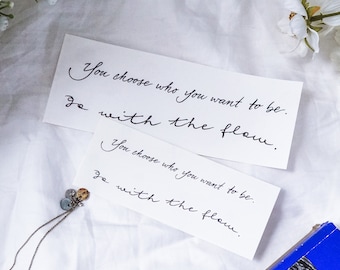 You choose who you want to be.
Go with the flow.
You choose who you want to be.
Go with the flow.